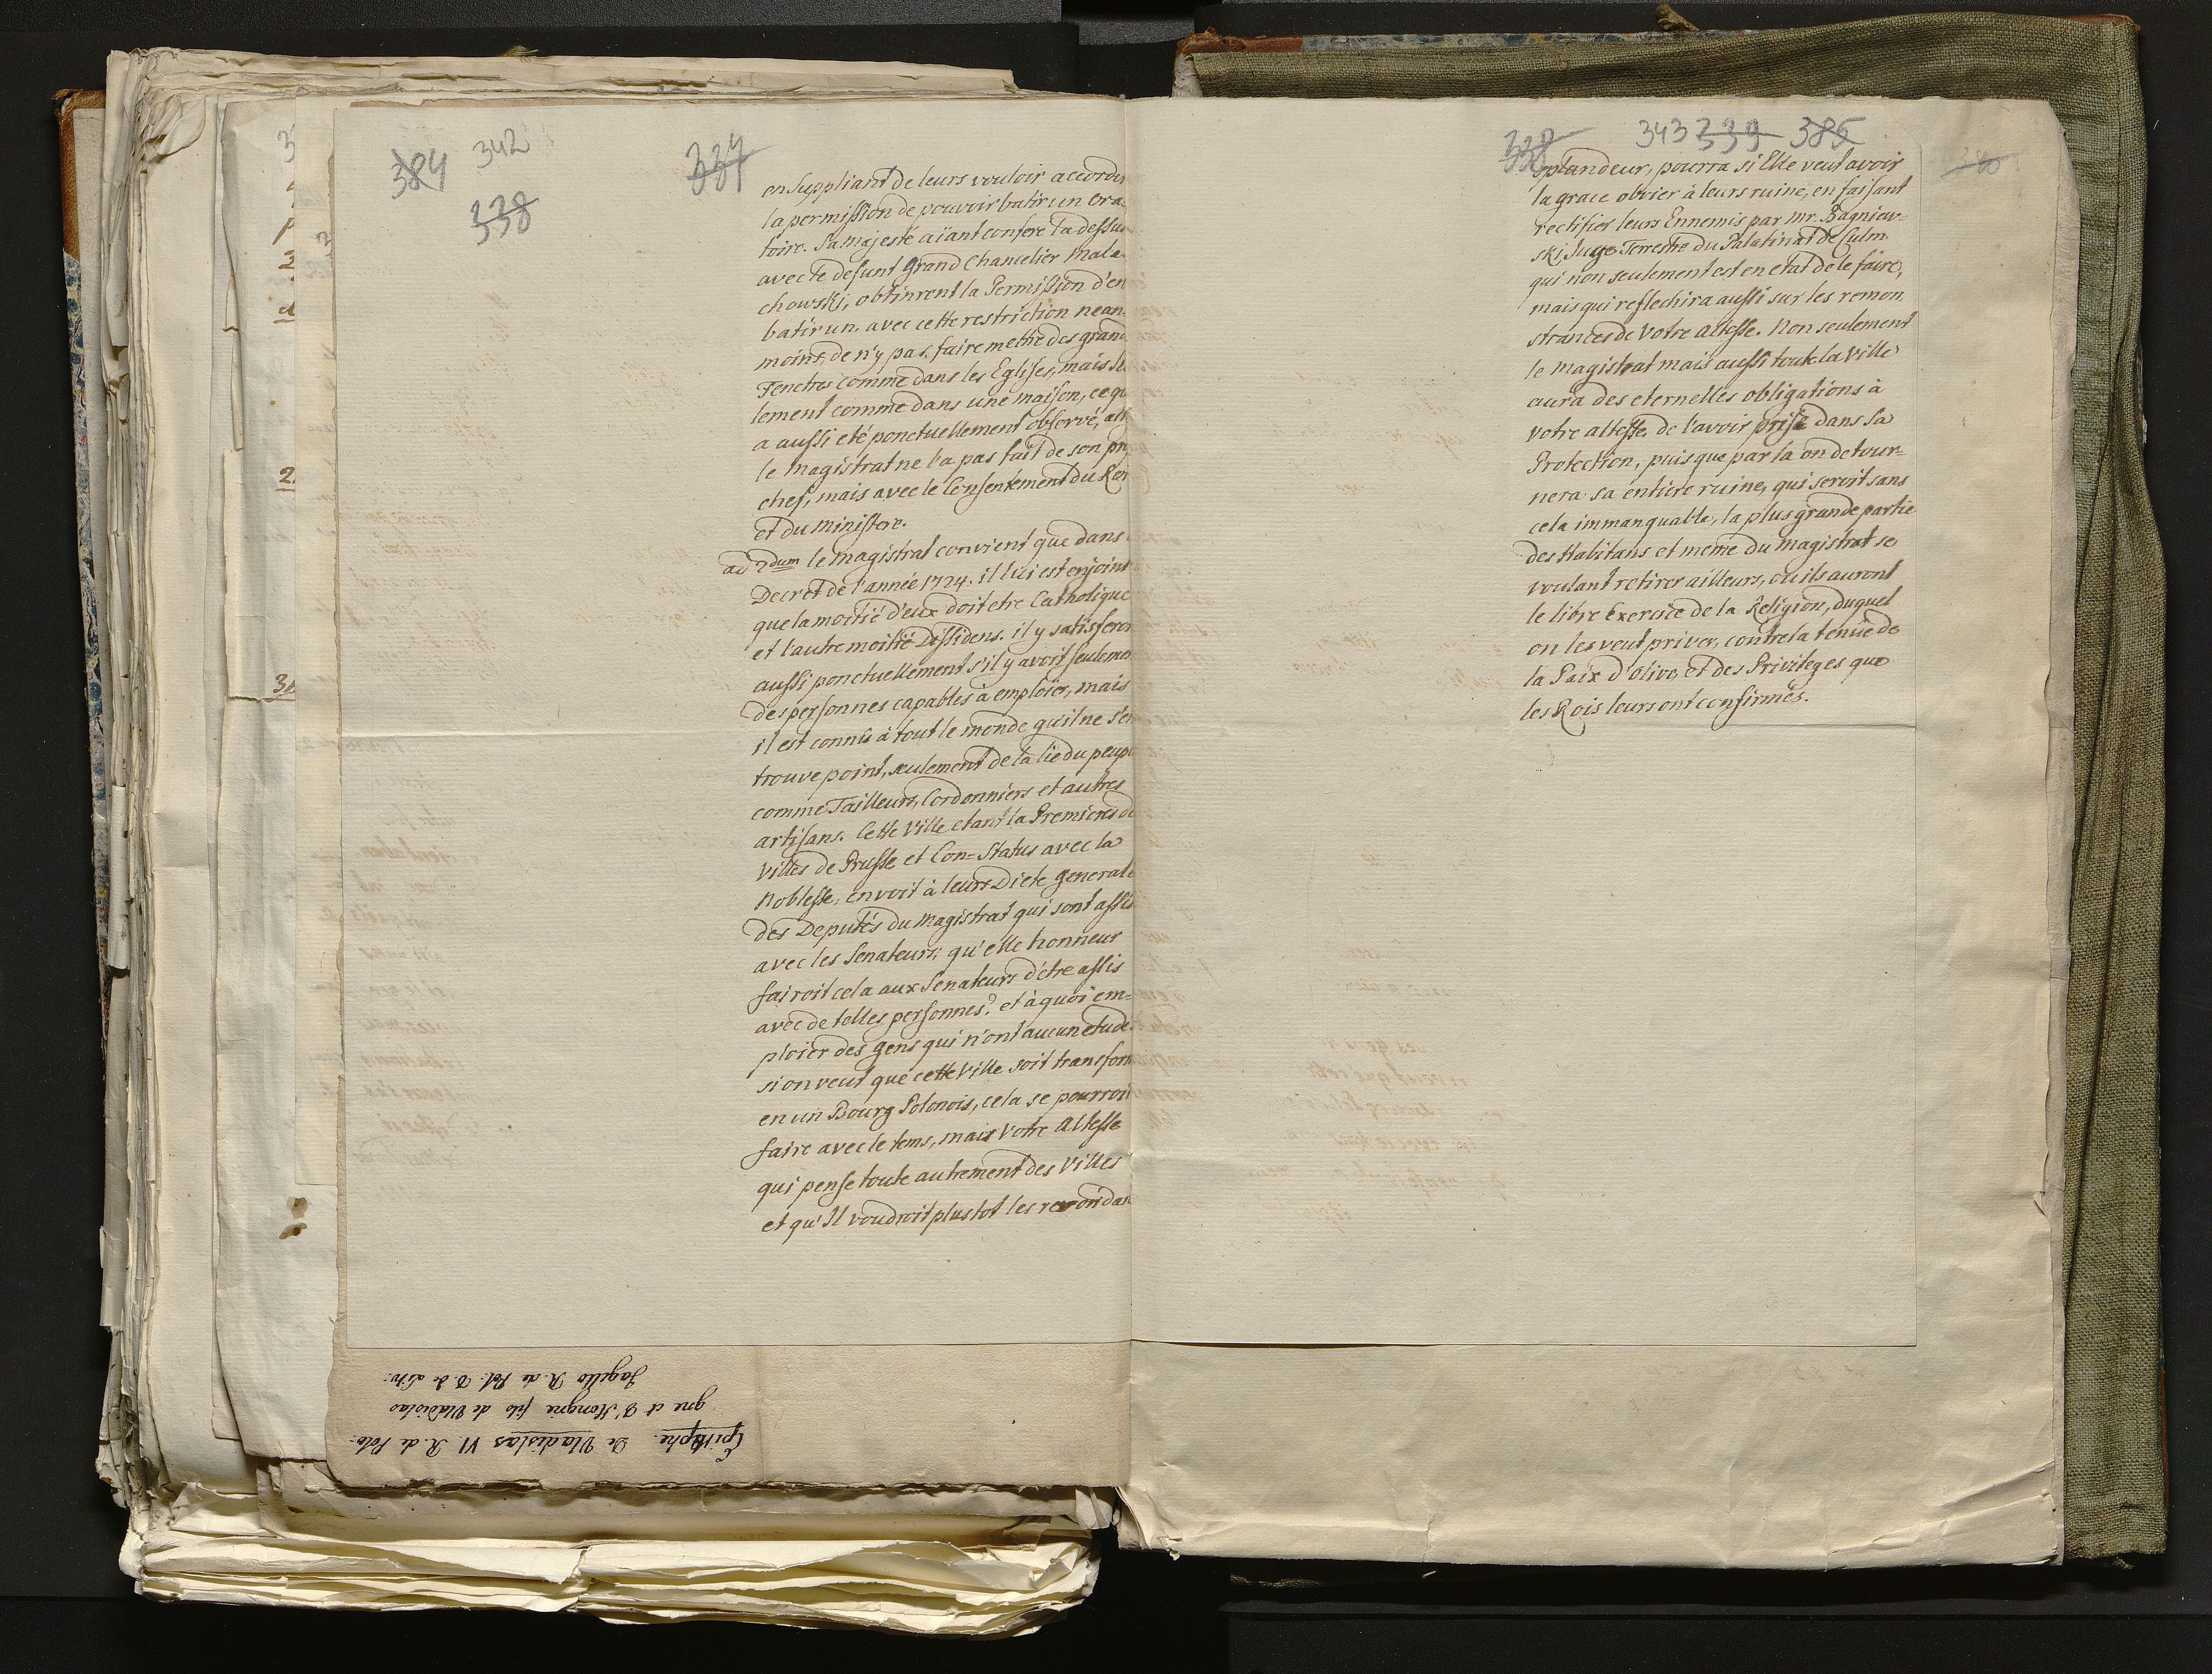 384 342 337
338
en suppliant de leurs vouloir accorder
la permission de pouvoir batir un Ora-
toire. Sa majesté aïant conferé la dessus
avec le defunt Grand Chancelier Mala-
chowski, obtinrent la Permission d'en
batir un, avec cette restriction nean-
moins, de n'y pas faire mettre des grand
Fenetres comme dans les Eglises, mais seu
lement comme dans une maison, ce qu
a aussi eté ponctuellement observé, ain
le Magistrat ne l'a pas fait de son pro
chef, mais avec le Consentement du Roi
et du Ministere.
ad 2dum le Magistrat convient que dans
Decret de l'année 1724. il lui est enjoint
que la moitié d'eux doit etre Catholique
et l'autre moitié Dissidens. il y satisferoi
aussi ponctuellement s'il y avoit seulemen
des personnes capables à emploïer, mais
il est connû à tout le monde qu'il ne s'en
trouve point, seulement de la lie du peupl
comme Tailleurs, Cordonniers et autres
artisans. Cette Ville etant la Premiere de
Villes de Prusse et Con-Status avec la
Noblesse, envoit à leurs Diete generale
des Deputés du Magistrat qui sont assis
avec les Senateurs; qu'elle honneur
fairoit cela aux Senateurs d'etre assis
avec de telles personnes? et à quoi em-
ploier des gens qui n'ont aucun etude
si on veut que cette Ville soit transform
en un Bourg Polonois, cela se pourroit
faire avec le tems, mais Votre Altesse
qui pense toute autrement des Villes
et qu'Il voudroit plustot les revoir dan
Epitaphe. De Vladislas VI R. de Polo-
gne et d'Hongrie fils de Vladislas
Jagello R. de Pol. D. de Litv.
338 343 339 385
splandeur, pourra si Elle veut avoir
la grace obvier à leurs ruine, en faisant
rectifier leurs Ennemis par Mr. Bagniew-
ski Juge Terrestre du Palatinat de Culm
qui non seulement est en etat de le faire,
mais qui reflechira aussi sur les remon
strances de Votre Altesse. Non seulement
le Magistrat mais aussi toute la Ville
aura des eternelles obligations à
Votre Altesse, de l'avoir prise dans Sa
Protection, puisque par la on detour-
nera sa entiere ruine, qui seroit sans
cela immanquable, la plus grande partie
des Habitans et meme du Magistrat se
voulant retirer ailleurs, ou ils auront
le libre Exercice de la Religion, duquel
on les veut priver, contre la tenüe de
la Paix d'Olive, et des Privileges que
les Rois leurs ont confirmés.